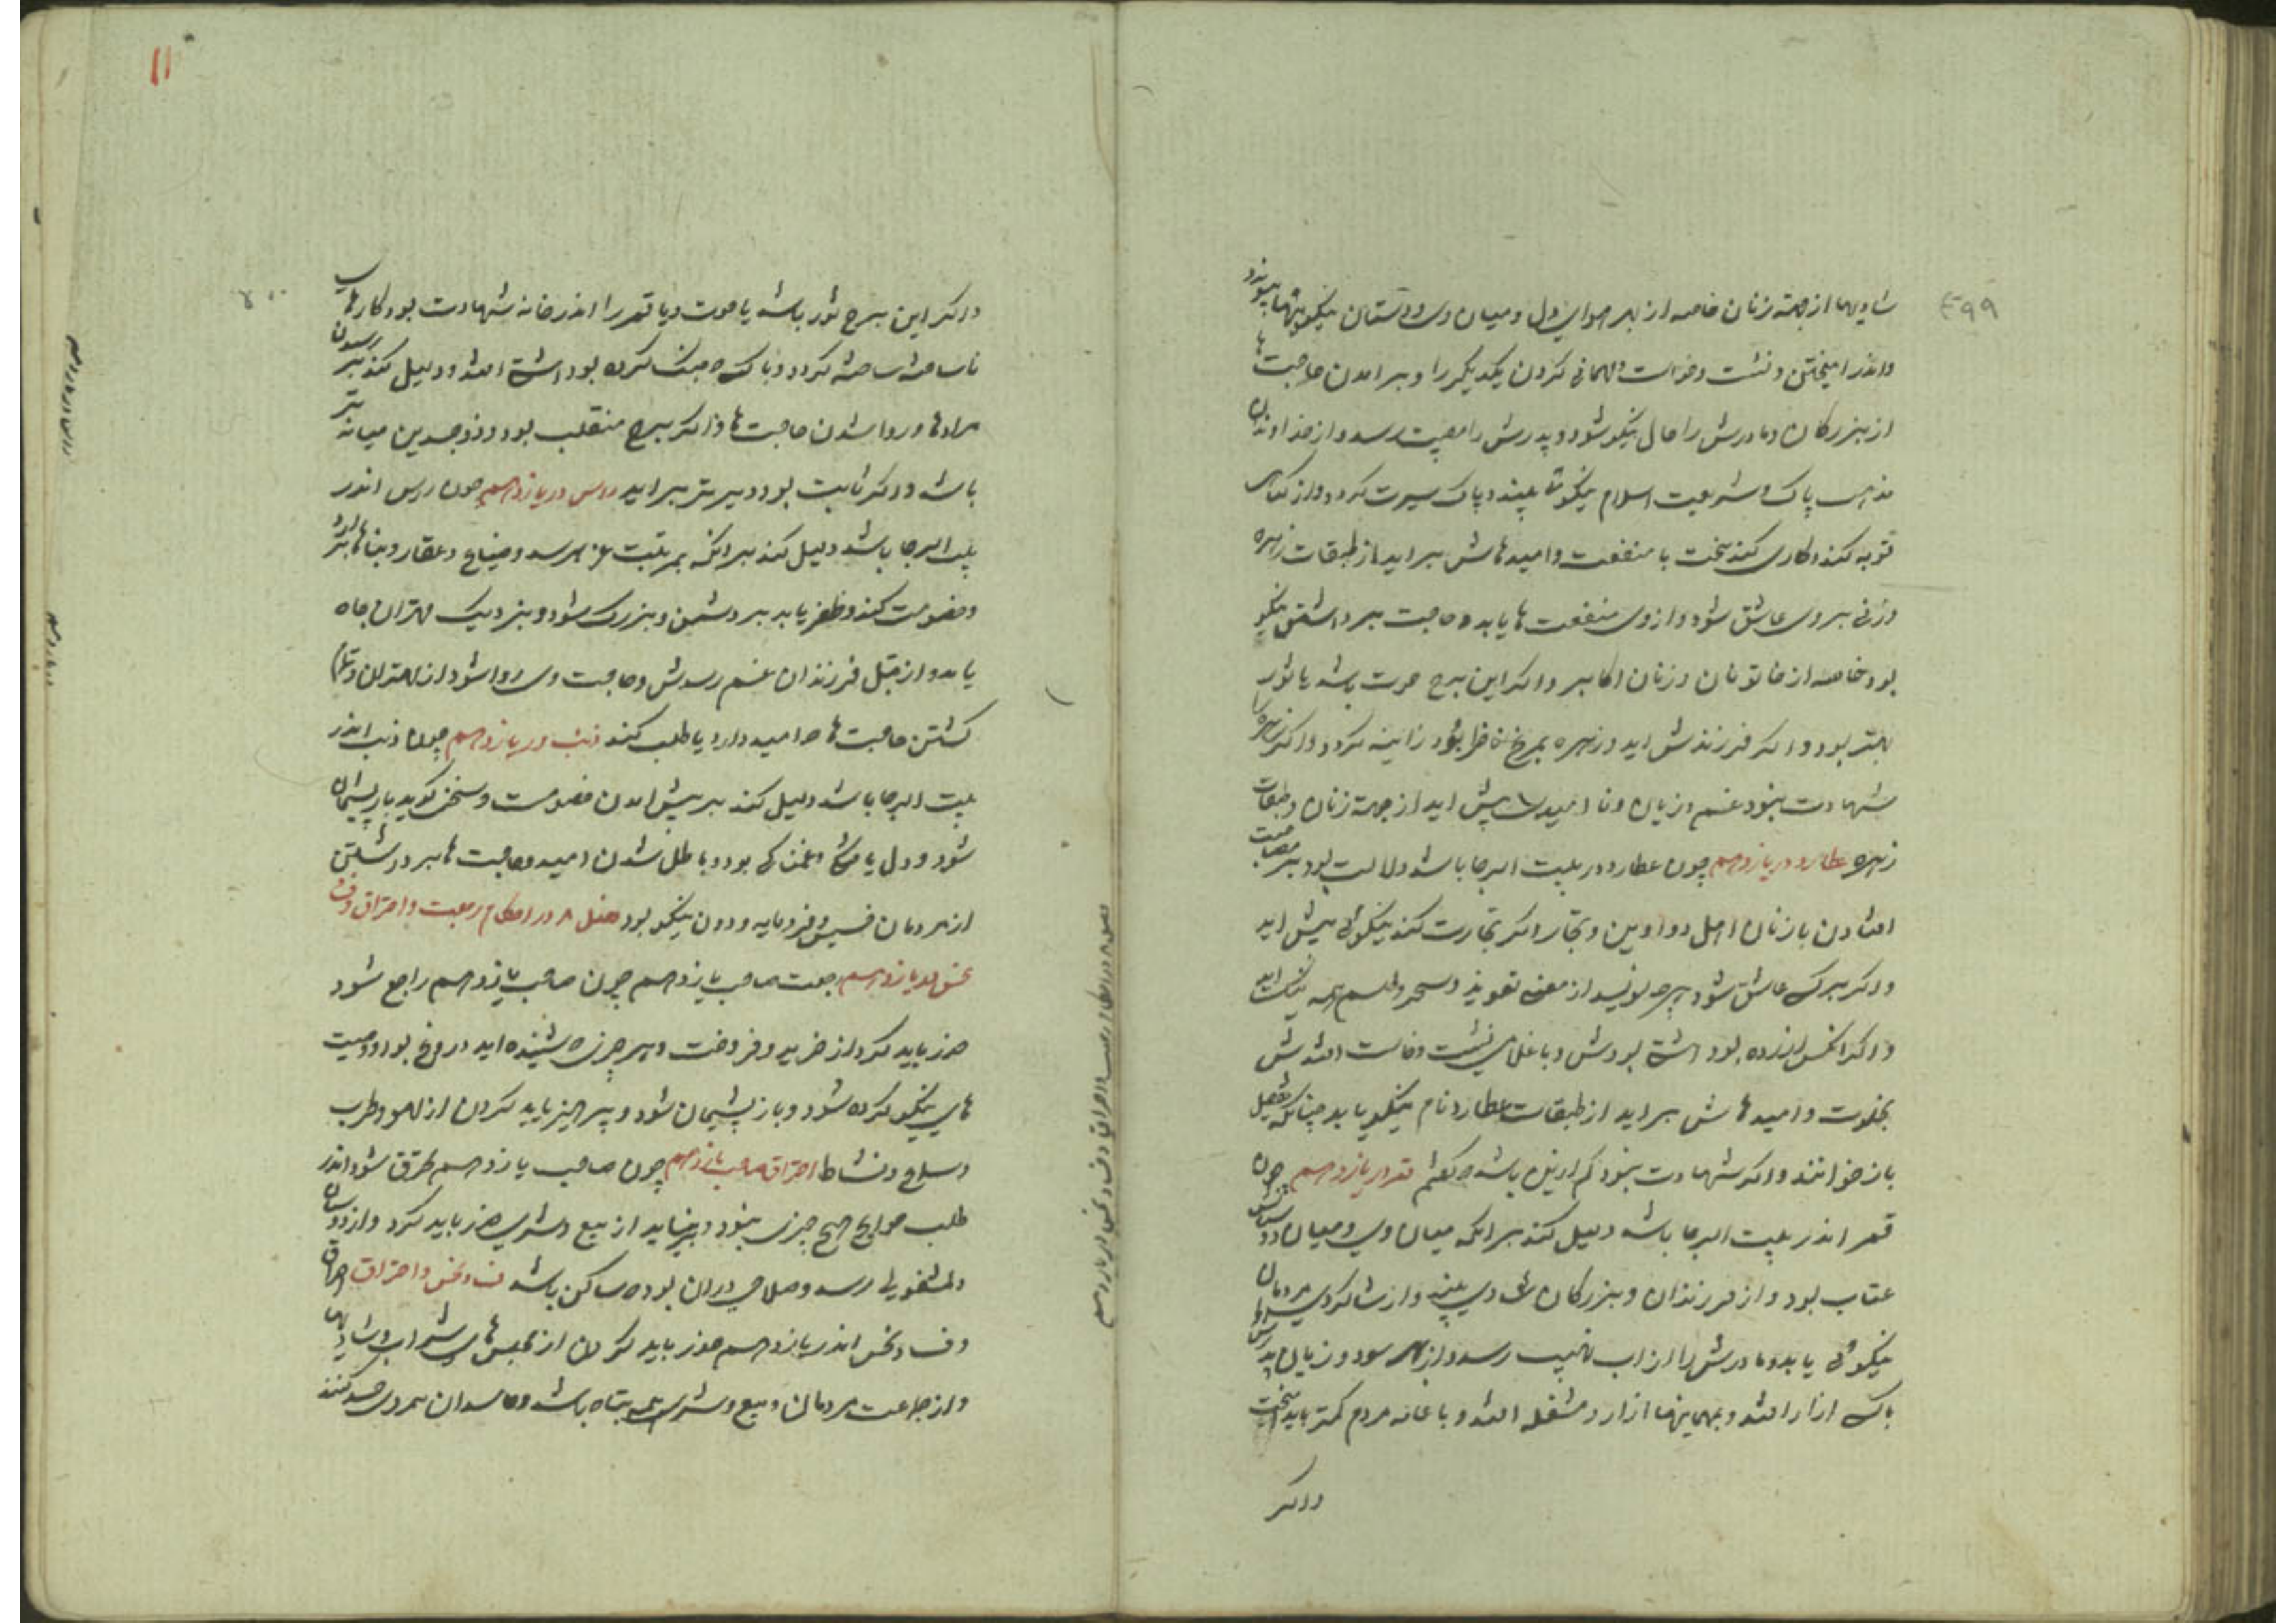 ۴۹۹
شادیها از جهة زنان خاصه از بهر هوای دل و میان وی و دوستان نیکوییها پیوندد
و اندر امیختن و نشست و خواست و مهمانی کردن یکدیکر را و برامدن حاجت ها
از بزرکان و مادرش را حال نیکو شود و پدرش را مصیبت رسد و از خداوندان
مذهب پاک و شریعت اسلام نیکوئی بیند و پاک سیرت کردد و از کناهی
توبه کند و کاری کند سخت با منفعت و امیدهاش براید از طبقات زهره
و زنی بر وی عاشق شود و از وی منفعت ها یابد و حاجت برداشتن نیکو
بود خاصه از خاتونان و زنان اکابر و اکر این برج حوت باشد یا ثور
بهتر بود و اکر فرزندش اید و زهره بمریخ زانیه کردد و اکر زهره را
شهادت نبود غم و زیان و نا امیدی پیش اید از جهة زنان و طبقات
زهره عطارد در یازدهم چون عطارد در بیت الرجا باشد دلالت بود بر مصاحبت
افتادن با زنان اهل دواوین و تجار و اکر تجارت کند نیکوئی پیش اید
و اکر بر کسی عاشق شود و هرچه نویسد از معنی تعویذ و سحر و طلسم همه نیک اید
و اکر انکس ازرده بود اشتی بودش و با غلامی نشست و خاست افتدش
بخلوت و امیدهاش براید از طبقات عطارد و نام نیکو یابد چنانکه بفضل
باز خوانند و اکر شهادت نبود کم ازین باشد که کفتم قمر در یازدهم چون
قمر اندر بیت الرجا باشد دلیل کند بر انکه میان وی و میان دوستانش
عتاب بود و از فرزندان و بزرکان شادی بیند و از شاکردی مردمان
نیکوئی یابد و مادرش را از اب نهیب رسد و از سود و زیان پدرش
باک ازار افتد و بمهمانیها ازار و مشغله افتد و با عامه مردم کمتر باید
واکر
۱۱
۵۰۰
و اکر این برج ثور باشد یا حوت و یا قمر را اندر خانه شهادت بود کارهای
ناساخته ساخته کردد و با کسی که جنک کرده بود اشتی افتد و دلیل کند بر رسیدن
مرادها و روا شدن حاجت ها و اکر برج منقلب بود و ذوجسدین میانه تر
باشد و اکر ثابت بود دیرتر براید راس در یازدهم چون راس اندر
بیت الرجا باشد دلیل کند بر انکه بمرتبت عز برسد و ضیاع و عقار و بناها
و خصومت کند و ظفر یابد بر دشمن و بزرک شود و بنزدیک مهتران جاه
یابد و از قبل فرزندان غم رسدش و حاجت وی روا شود از مهتران
کشتن حاجت ها که امید دارد یا طلب کند ذنب در یازدهم چون ذنب اندر
بیت الرجا باشد دلیل کند بر پیش امدن خصومت و سخن کوید باز پشیمان
شود و دل یا غمناکی بود و باطل شدن امید و حاجت ها برداشتن
از مردمان خسیس و فرومایه و دون نیکو بود فصل ۸ در احکام رجعت و احتراق و فساد
نحس در یازدهم رجعت صاحب یازدهم چون صاحب یازدهم راجع شود
حذر باید کرد از خرید و فروخت و هر چیزی که شنیده اید دروغ بود و وصیت
های نیکو کرده شود و باز پشیمان شود و پرهیز باید کردن از لهو و طرب
و سلاح و نشاط احتراق صاحب یازدهم چون صاحب یازدهم محترق شود اندر
طلب حوایج هیچ چیزی نبود و نیز نباید از بیع و شری حذر باید کرد و از دوستان
دلمشغولی رسد و صلاح دران بود که ساکن باشد فساد نحس و احتراق چون
و فساد نحس اندر یازدهم حذر باید کردن از مجلس های شراب و شادیها
و از جماعت مردمان و بیع و شری همه تباه باشد و حاسدان بر وی حسد کنند
فصل ۸ در احکام رجعت و احتراق و فساد و نحس در یازدهم